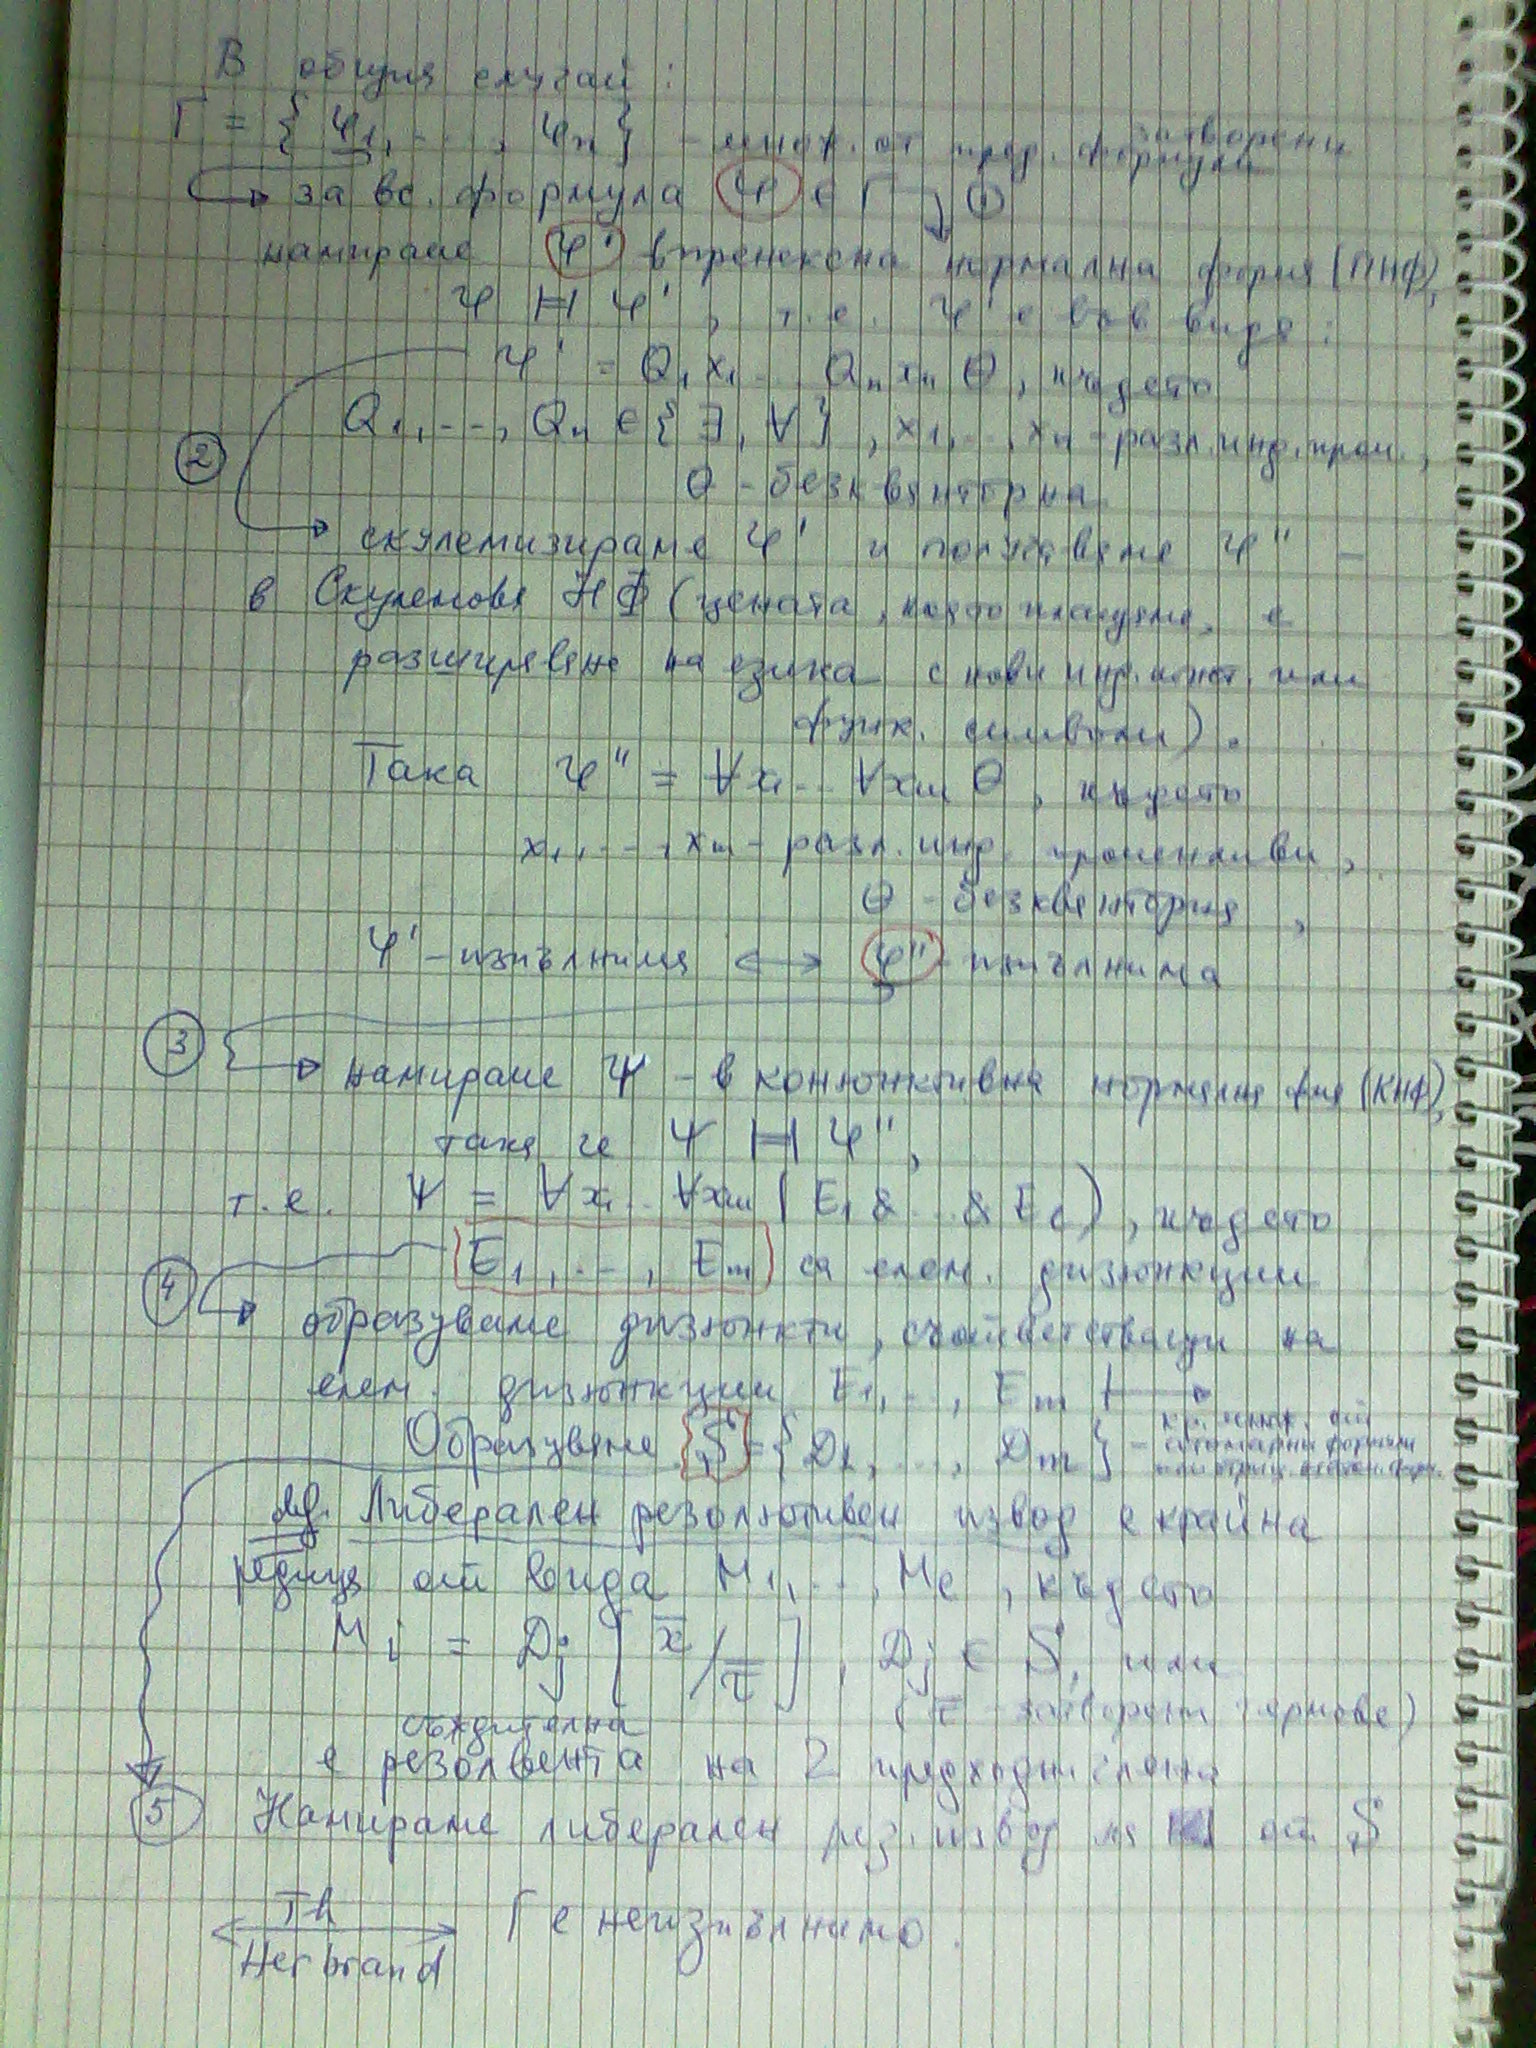 В общия случай:
Γ = {φ1, ..., φn} - множ. от пред. формули затворени
за вс. формула φ ∈ Γ ①
намираме φ' в пренексна нормална форма (ПНФ),
φ |=| φ', т.е. φ' е във вида:
φ' = Q1x1 ... Qnxn θ, където
Q1, ..., Qn ∈ {∃, ∀}, x1, ..., xn - разл. инд. пром.,
θ - безкванторна
② скулемизираме φ' и получаваме φ'' -
в Скулемова НФ (цената, която плащаме, е
разширяване на езика с нови инд. конст. или
функ. символи).
Така φ'' = ∀x1 ... ∀xm θ, където
x1, ..., xm - разл. инд. променливи,
θ - безкванторна,
φ' - изпълнима ⟷ φ'' - изпълнима
③ намираме Ψ - в конюнктивна нормална фма (КНФ),
така че Ψ |=| φ'',
т.е. Ψ = ∀x1 ... ∀xm (E1 & ... & El), където
E1, ..., Em са елем. дизюнкции
④ образуваме дизюнкти, съответстващи на
елем. дизюнкции E1, ..., Em ⟼
Образуваме S = {D1, ..., Dm} - кр. множ. от
атомарни формули
или отриц. атом. форм.
Деф. Либерален резолютивен извод е крайна
редица от вида M1, ..., Ml, където
Mi = Dj [x̄/τ̄], Dj ∈ S, или
(τ̄ - затворени термове)
съждителна
е резолвента на 2 предходни члена
⑤ Намираме либерален рез. извод на ■ от S
⟷ Th Herbrand Γ е неизпълнимо.